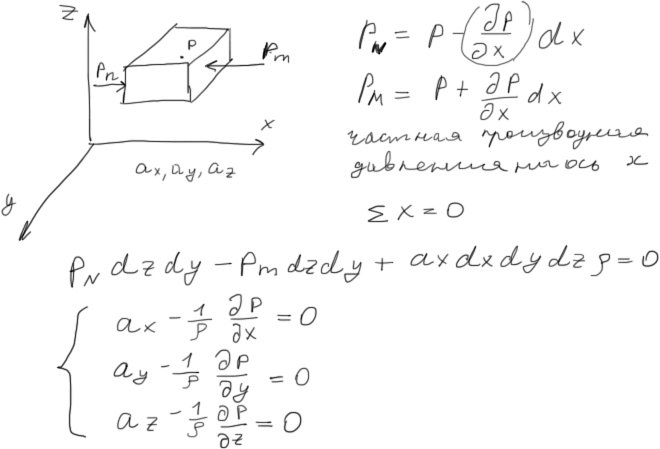 z
P
Pn
Pm
x
ax, ay, az
y
P_N = P - (∂P/∂x) dx
P_M = P + ∂P/∂x dx
частная производная
давления на ось x
Σ X = 0
P_N dz dy - P_m dz dy + ax dx dy dz ρ = 0
ax - 1/ρ ∂P/∂x = 0
ay - 1/ρ ∂P/∂y = 0
az - 1/ρ ∂P/∂z = 0